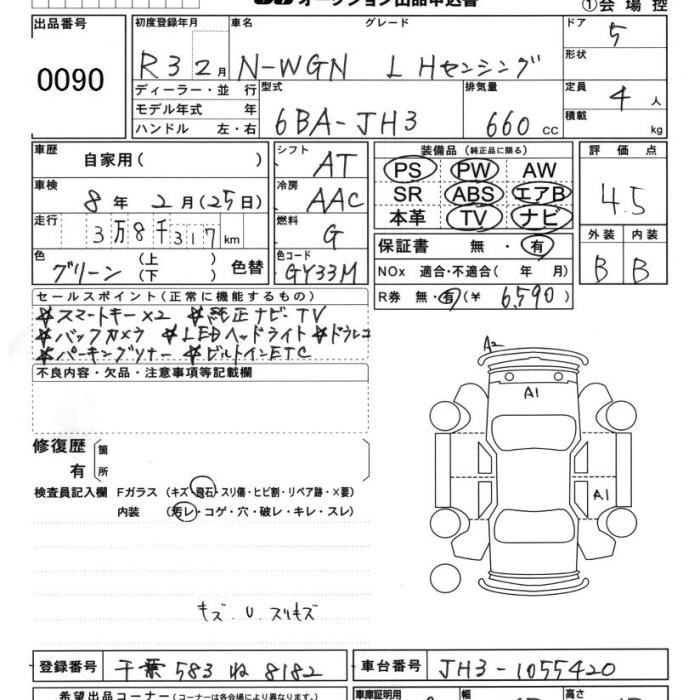 オークション出品申込書 ①会場控
出品番号 0090
初度登録年月 R3 2月
車名 N-WGN
グレード L Hセンシング
ドア 5
形状
ディーラー・並行
モデル年式 年
ハンドル 左・右
型式 6BA-JH3
排気量 660cc
定員 4人
積載 kg
車歴 自家用( )
シフト AT
装備品 (純正品に限る)
評価点 4.5
PS PW AW
車検 8年2月(25日)
冷房 AAC
SR ABS エアB
本革 TV ナビ
走行 3万8千317km
燃料 G
外装 内装
B B
保証書 無・有
色 グリーン (上 下) 色替
色コード GY33M
NOx 適合・不適合( 年 月)
R券 無・有(¥ 6,590)
セールスポイント(正常に機能するもの)
☆スマートキー×2 ☆純正ナビTV
☆バックカメラ ☆LEDヘッドライト ☆ドラレコ
☆パーキングソナー ☆ビルトインETC
不良内容・欠品・注意事項等記載欄
修復歴 有 箇所
検査員記入欄 Fガラス (キズ・飛石・スリ傷・ヒビ割・リペア跡・X要)
内装 (汚レ・コゲ・穴・破レ・キレ・スレ)
キズ.U.スリキズ
A2
A1
A1
登録番号 千葉 583 ね 8182
車台番号 JH3-1055420
希望出品コーナー(コーナーは各会場により異なります。)
車庫証明用 幅 高さ